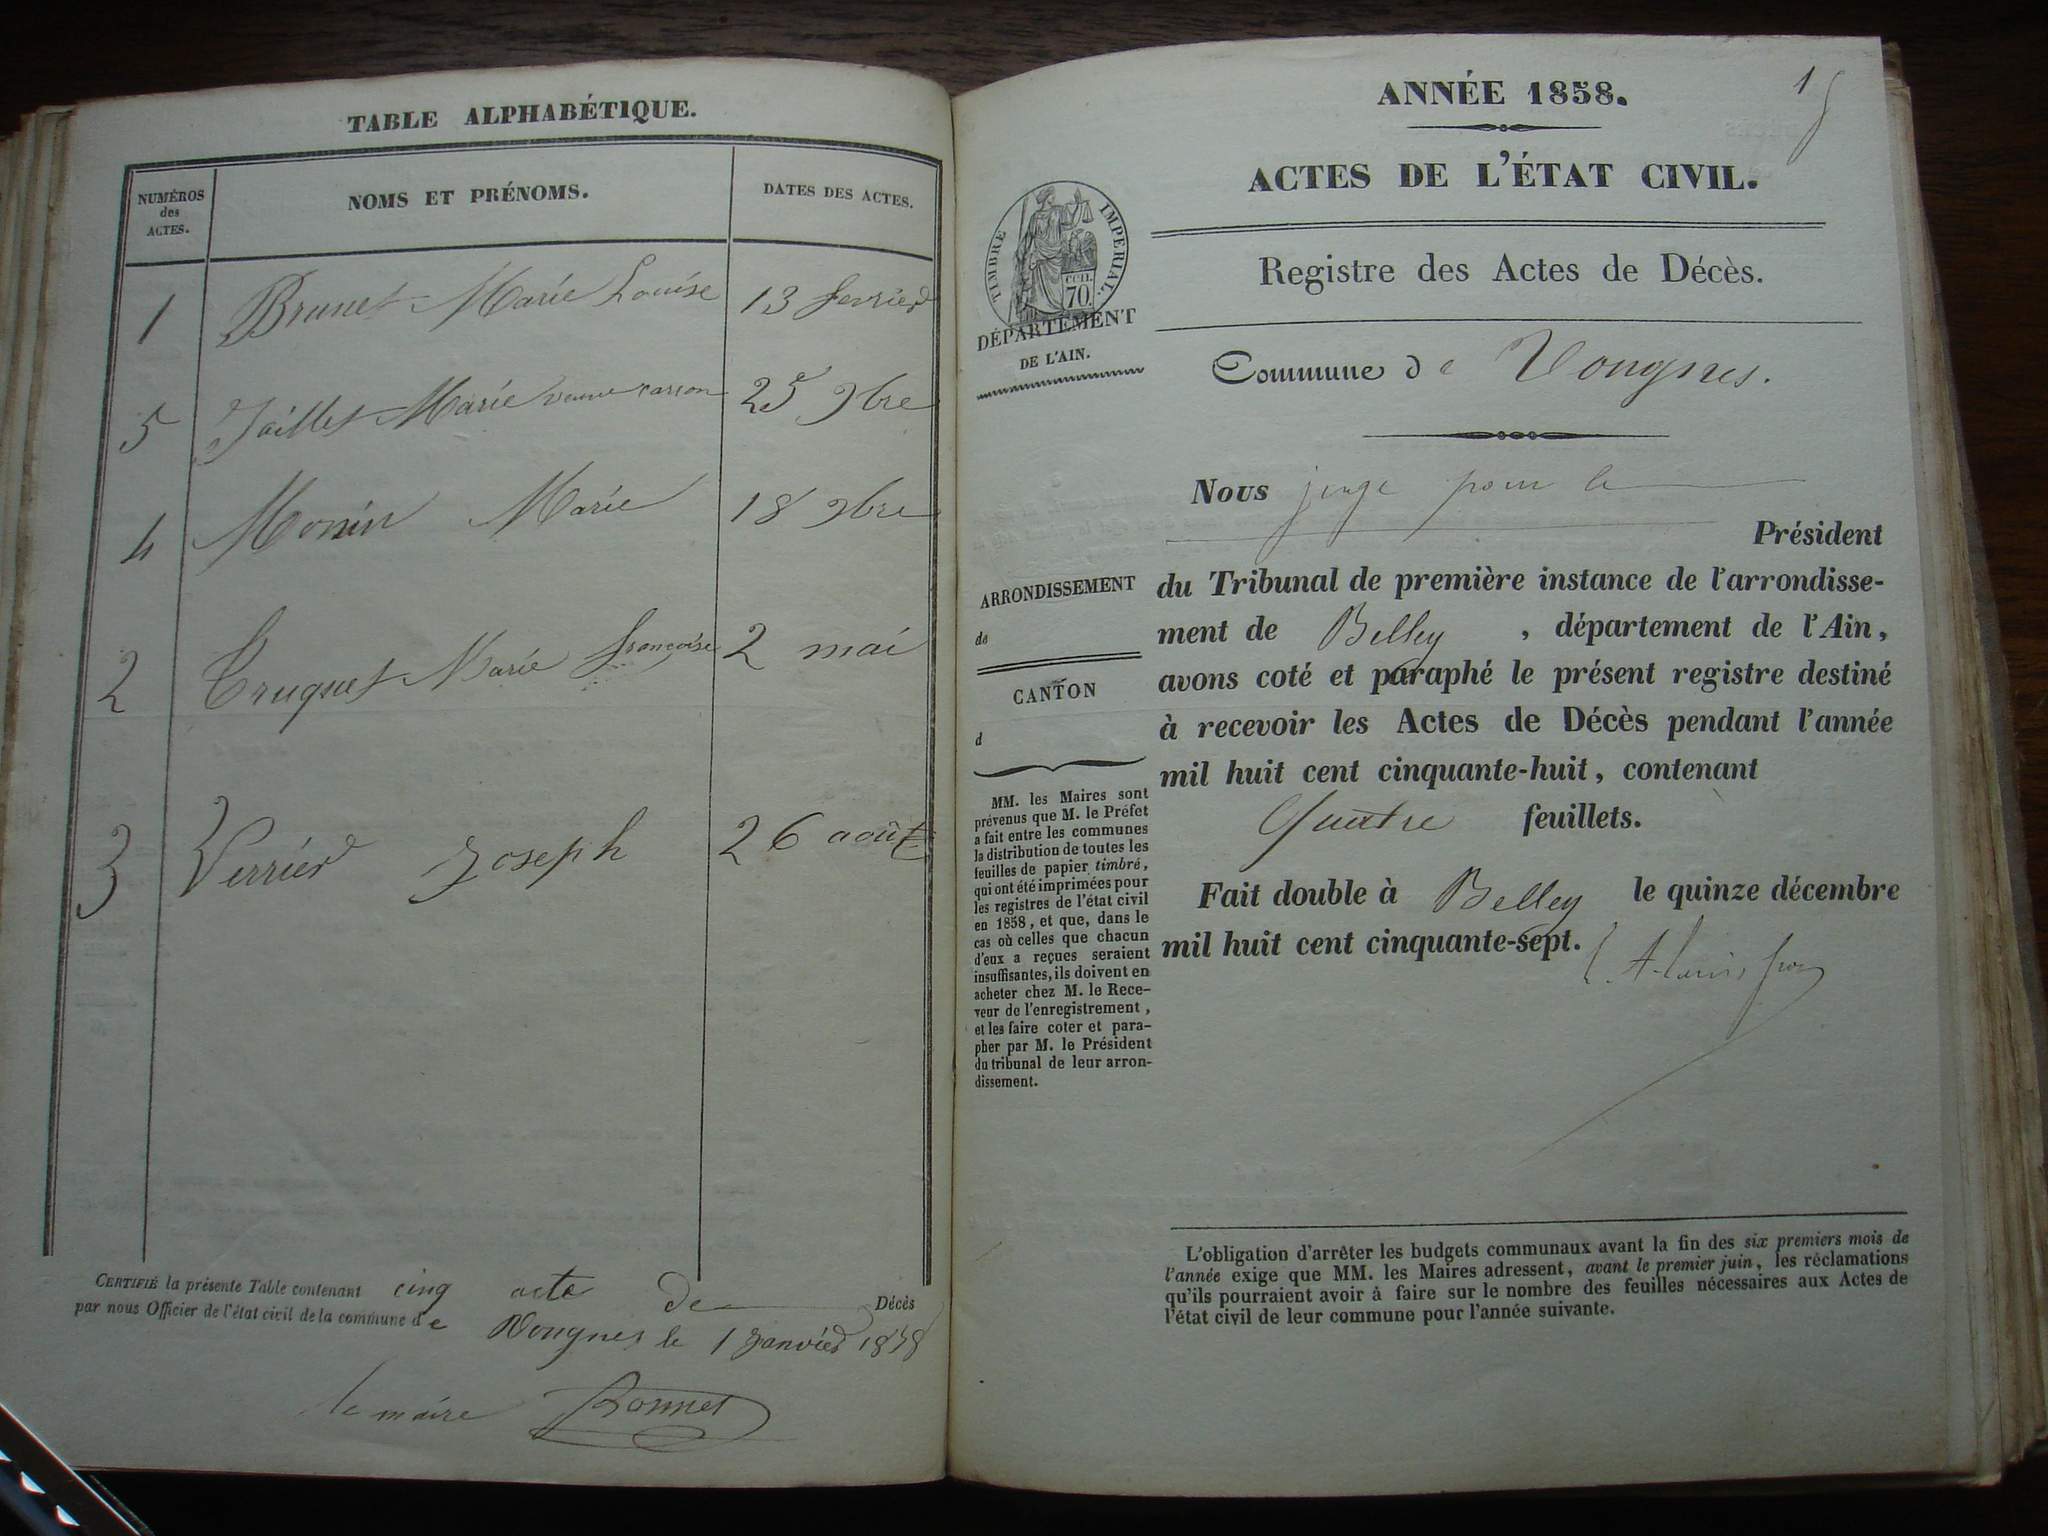 TABLE ALPHABÉTIQUE.
NUMÉROS
des
ACTES.
NOMS ET PRÉNOMS.
DATES DES ACTES.
1 Brunet Marie Louise 13 fevrier
5 Jaillet Marie veuve 25 9bre
4 Monin Marie 18 9bre
2 Truquet Marie françoise 2 mai
3 Verrier Joseph 26 août
CERTIFIÉ la présente Table contenant cinq acte de Décès
par nous Officier de l'état civil de la commune de Vongnes le 1 Janvier 1858
le maire Bonnet
1
ANNÉE 1858.
ACTES DE L'ÉTAT CIVIL.
TIMBRE IMPERIAL.
CCIL
70.
DÉPARTEMENT
DE L'AIN.
Registre des Actes de Décès.
Commune de Vongnes.
Nous juge pour le
Président
du Tribunal de première instance de l'arrondisse-
ment de Belley, département de l'Ain,
avons coté et paraphé le présent registre destiné
à recevoir les Actes de Décès pendant l'année
mil huit cent cinquante-huit, contenant
Quatre feuillets.
Fait double à Belley le quinze décembre
mil huit cent cinquante-sept.
ARRONDISSEMENT
de
CANTON
d
MM. les Maires sont
prévenus que M. le Préfet
a fait entre les communes
la distribution de toutes les
feuilles de papier timbré,
qui ont été imprimées pour
les registres de l'état civil
en 1858, et que, dans le
cas où celles que chacun
d'eux a reçues seraient
insuffisantes, ils doivent en
acheter chez M. le Rece-
veur de l'enregistrement,
et les faire coter et para-
pher par M. le Président
du tribunal de leur arron-
dissement.
L'obligation d'arrêter les budgets communaux avant la fin des six premiers mois de
l'année exige que MM. les Maires adressent, avant le premier juin, les réclamations
qu'ils pourraient avoir à faire sur le nombre des feuilles nécessaires aux Actes de
l'état civil de leur commune pour l'année suivante.